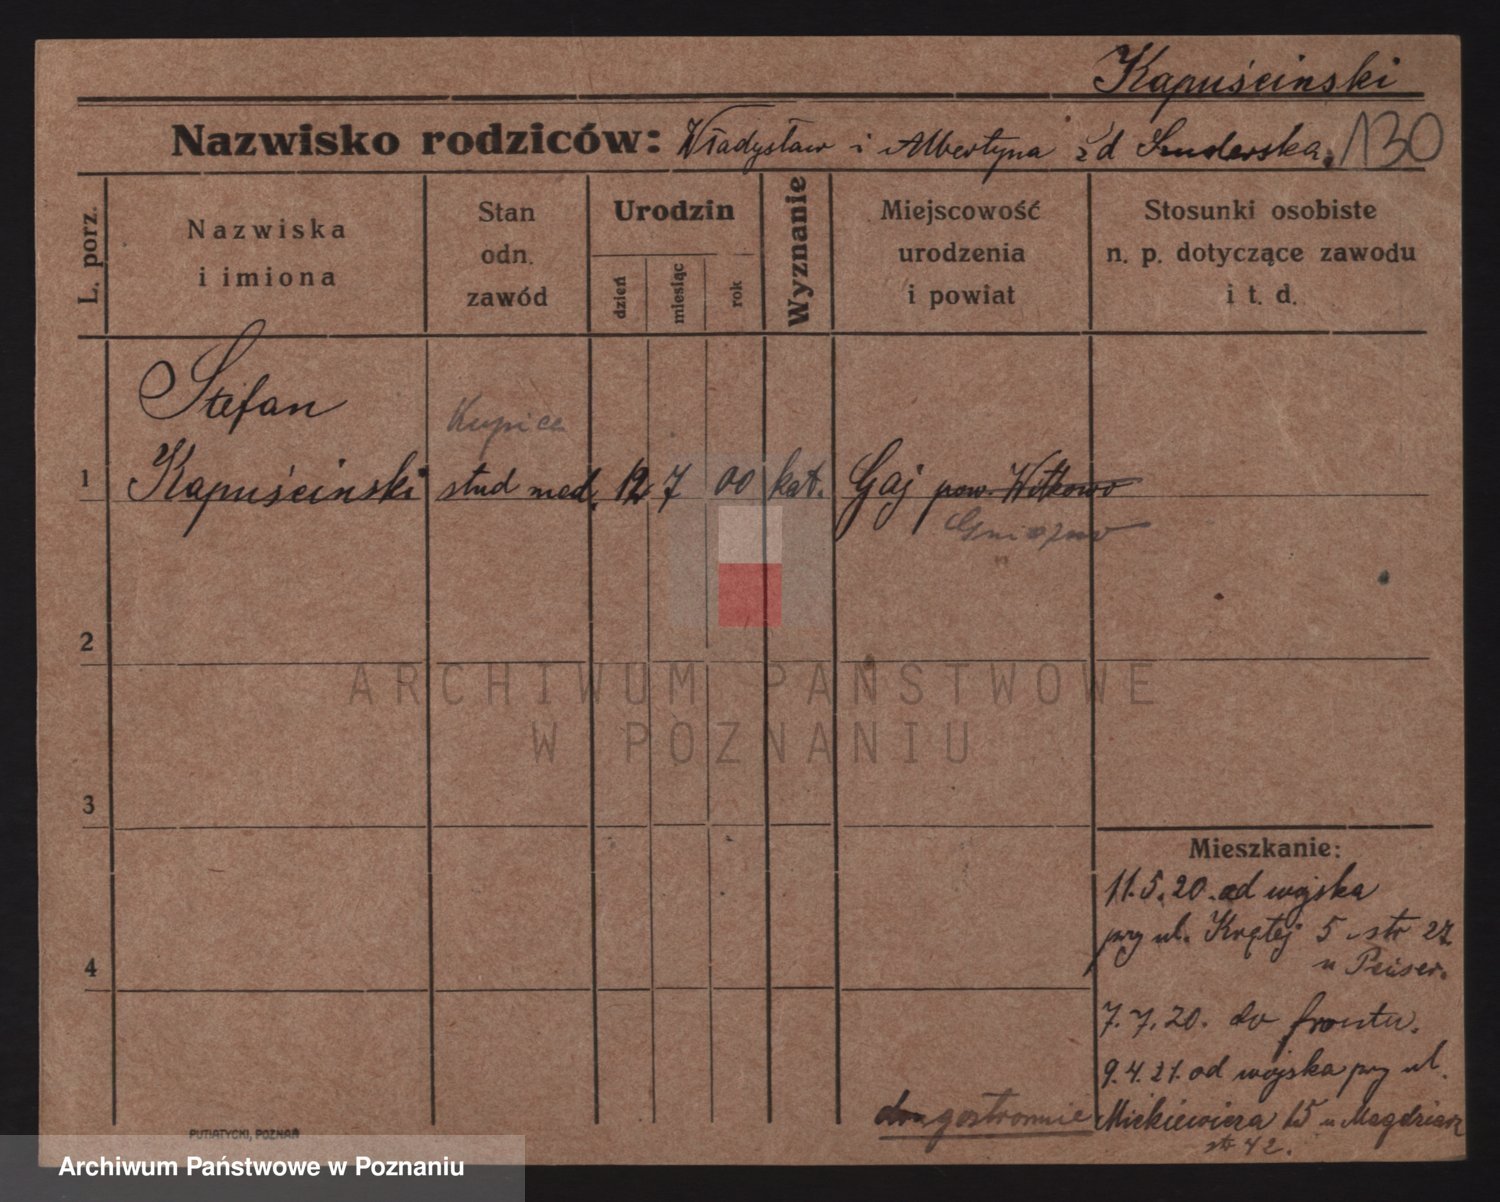 Kapuściński
Nazwisko rodziców: Władysław i Albertyna zd 130
L. porz.
Nazwiska
i imiona
Stan
odn.
zawód
Urodzin
dzień
miesiąc
rok
Wyznanie
Miejscowość
urodzenia
i powiat
Stosunki osobiste
n. p. dotyczące zawodu
i t. d.
Stefan
Kupiec
1 Kapuściński stud med. 12 7 00 kat. Gaj pow. Witkowo
Gniezno
2
ARCHIWUM PAŃSTWOWE
W POZNANIU
3
Mieszkanie:
11.5.20. od wojska
przy ul. Krętej 5 str 27
4
u Peiser.
7.7.20. do frontu.
9.4.21. od wojska przy ul.
drugostronnie Mickiewicza 15 u
str 42.
PUTIATYCKI, POZNAŃ
Archiwum Państwowe w Poznaniu